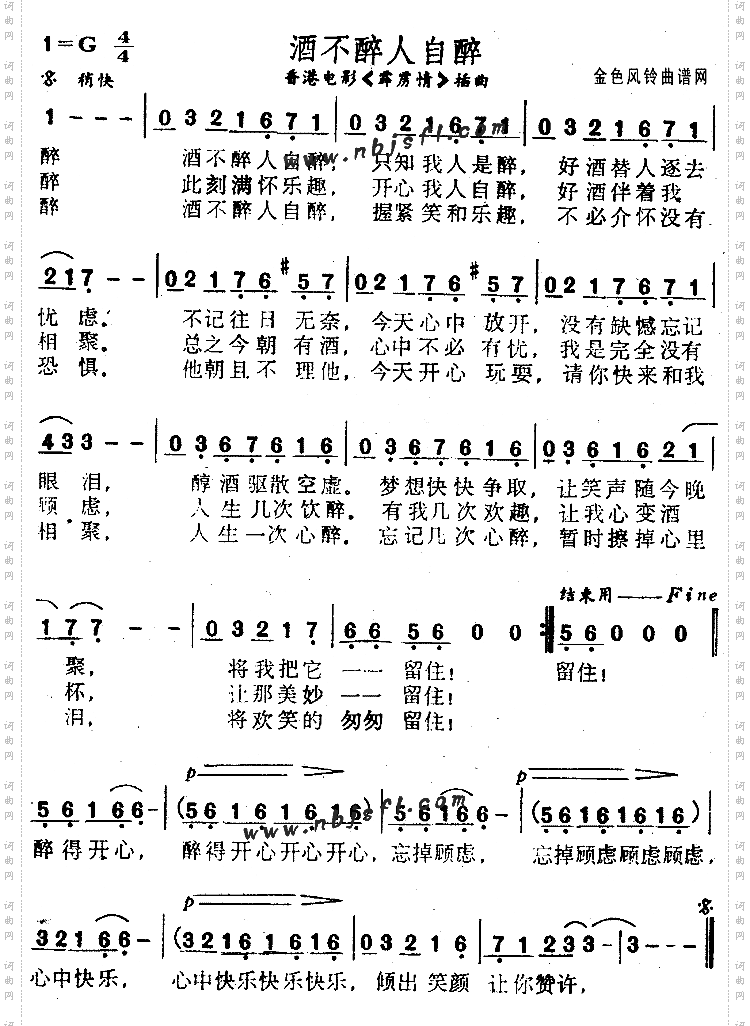 1=G 4/4
酒不醉人自醉
稍快
香港电影《霹雳情》插曲
金色风铃曲谱网
1 - - - | 0 3 2 1 6 7 1 | 0 3 2 1 6 7 1 | 0 3 2 1 6 7 1 |
醉 酒不醉人自醉, 只知我人是醉, 好酒替人逐去
醉 此刻满怀乐趣, 开心我人自醉, 好酒伴着我
醉 酒不醉人自醉, 握紧笑和乐趣, 不必介怀没有
2 1 7 - - | 0 2 1 7 6 #5 7 | 0 2 1 7 6 #5 7 | 0 2 1 7 6 7 1 |
忧虑. 不记往日无奈, 今天心中放开, 没有缺憾忘记
相聚. 总之今朝有酒, 心中不必有忧, 我是完全没有
恐惧. 他朝且不理他, 今天开心玩耍, 请你快来和我
4 3 3 - - | 0 3 6 7 6 1 6 | 0 3 6 7 6 1 6 | 0 3 6 1 6 2 1 |
眼泪, 醇酒驱散空虚. 梦想快快争取, 让笑声随今晚
顾虑. 人生几次饮醉. 有我几次欢趣, 让我心变酒
相聚. 人生一次心醉. 忘记几次心醉, 暂时擦掉心里
结束用——Fine
1 7 7 - - | 0 3 2 1 7 | 6 6 5 6 0 0 :| 5 6 0 0 0 |
聚, 将我把它 一一 留住! 留住!
杯, 让那美妙 一一 留住!
泪, 将欢笑的 匆匆 留住!
p p
5 6 1 6 6 - | (5 6 1 6 1 6 1 6) | 5 6 1 6 6 - | (5 6 1 6 1 6 1 6) |
醉得开心, 醉得开心开心开心, 忘掉顾虑, 忘掉顾虑顾虑顾虑,
3 2 1 6 6 - | (3 2 1 6 1 6 1 6) | 0 3 2 1 6 | 7 1 2 3 3 - | 3 - - - |
心中快乐, 心中快乐快乐快乐, 倾出笑颜 让你赞许,
www.nbjsfl.com
www.nbjsfl.com
词曲网